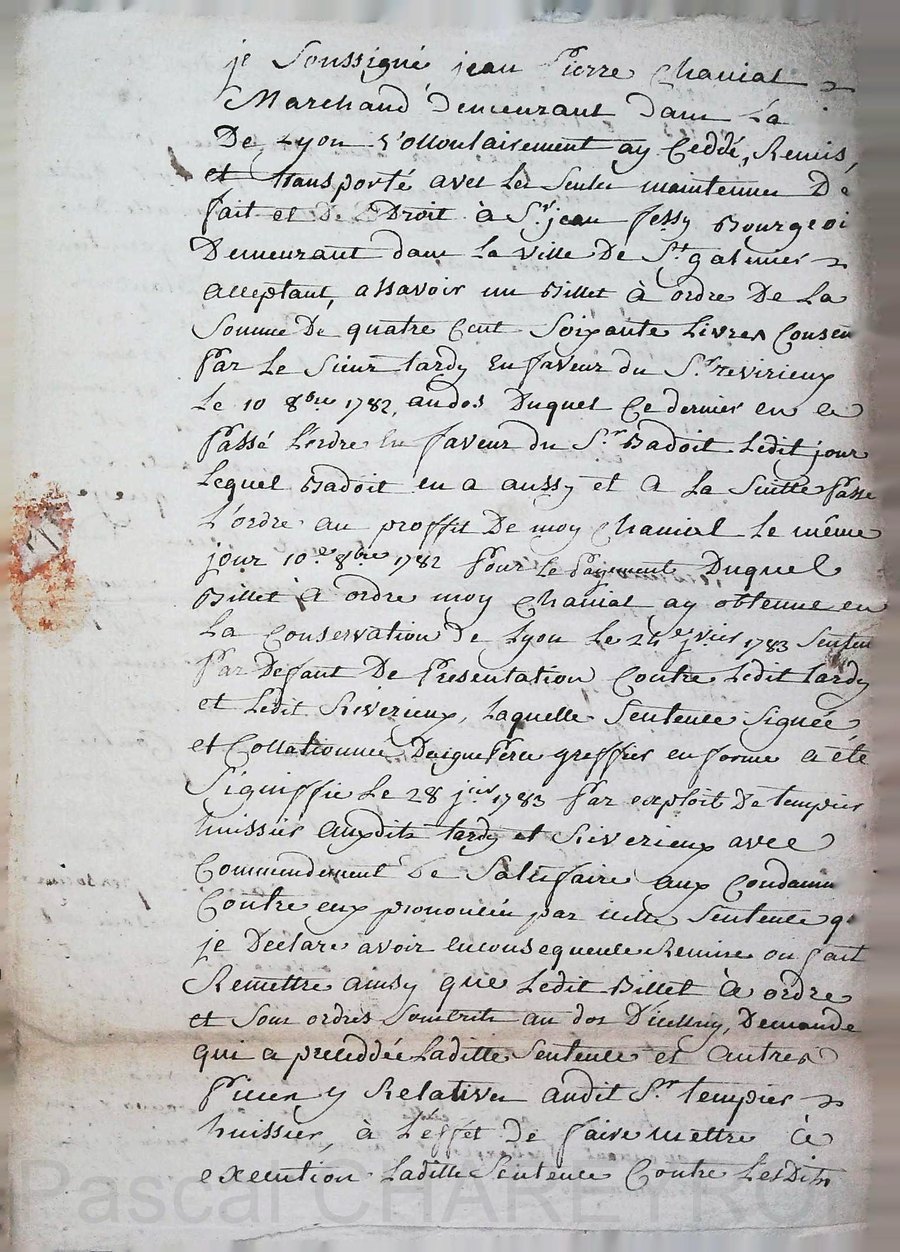 je Soussigné jean Pierre Chanial
Marchand demeurant dans La
De Lyon Vollontairement ay Ceddé, Remis,
et transporté avec Les Seules maintenues De
fait et De Droit à Sr. jean fessy Bourgeoi
Demeurant dans La ville De St. galmier
acceptant, assavoir un Billet à ordre De La
Somme De quatre Cent Soixante Livres Consen
Par Le Sieur tardy En faveur du Sr. reverieux
Le 10 8bre 1782, au dos Duquel Ce dernier en a
Passé L'ordre En faveur du Sr. Badoit Ledit jour
Lequel Badoit en a aussy et a La Suitte Passe
L'ordre au proffit De moy Chanial Le même
jour 10e 8bre 1782 Pour Le Payement Duquel
Billet à ordre moy Chanial ay obtenue en
La Conservation De Lyon Le 24 jvier 1783 Senten
Par Defaut De Presentation Contre Ledit tardy
et Ledit Riverieux, Laquelle Sentence Signée
et Collationnée Daigueperse greffier en forme a été
Signiffie Le 28 jvier 1783 Par exploit De tempier
huissier auxdits tardy et Riverieux avec
Commendement De Satisfaire aux Condamn
Contre eux prononcées par icelle Sentence q
je Declare avoir en consequence Remise ou fait
Remettre ainsy que Ledit Billet à ordre
et Sous ordres Souscrits au dos D'icelluy, Demande
qui a preceddée Laditte Sentence et autres
Pieces y Relatives audit Sr. tempier
huissier, à L'effet de faire mettre à
execution Laditte Sentence Contre Lesdits
Pascal CHAREYRO